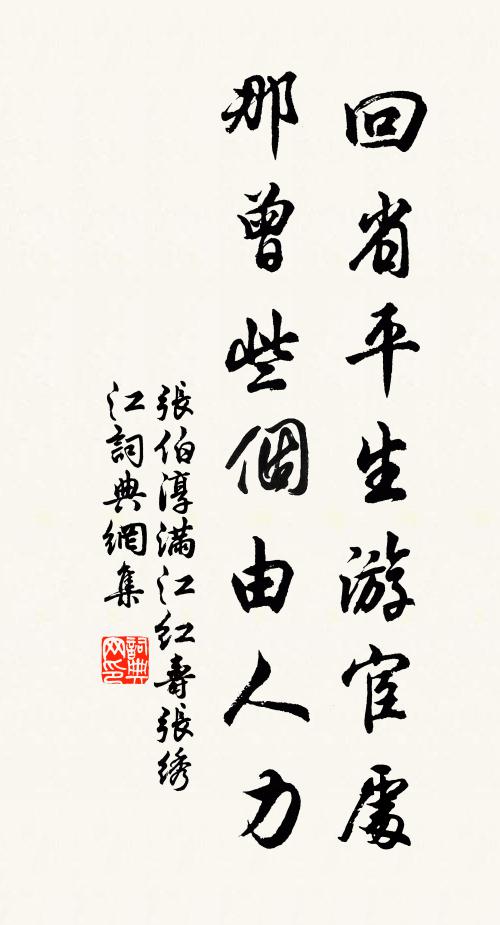 回省平生游宦處
那曾些個由人力
張伯淳滿江紅壽張綉
江詞典網集
詞典网印